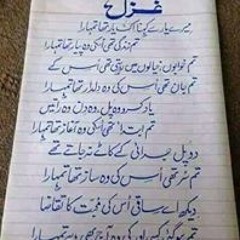 غزل
میرے یارے کہنا اک یار تھا تمہارا
تم زندگی تھی اُسکی وہ پیار تھا تمہارا
تم خوابوں خیالوں میں رہتی تھی اُس کے
تم جان تھی اُس کی وہ دلدار تھا تمہارا
یاد کرو وہ پل وہ دن وہ راتیں
تم ابتدا تھی اُسکی وہ آغاز تھا تمہارا
دو پل جدائی کے کاٹے نہ جاتے تھے
تم سُر تھی اُس کی وہ ساز تھا تمہارا
دیکھ اے ساقی اُس کی محبت کا تقاضا
وہ آج بھی